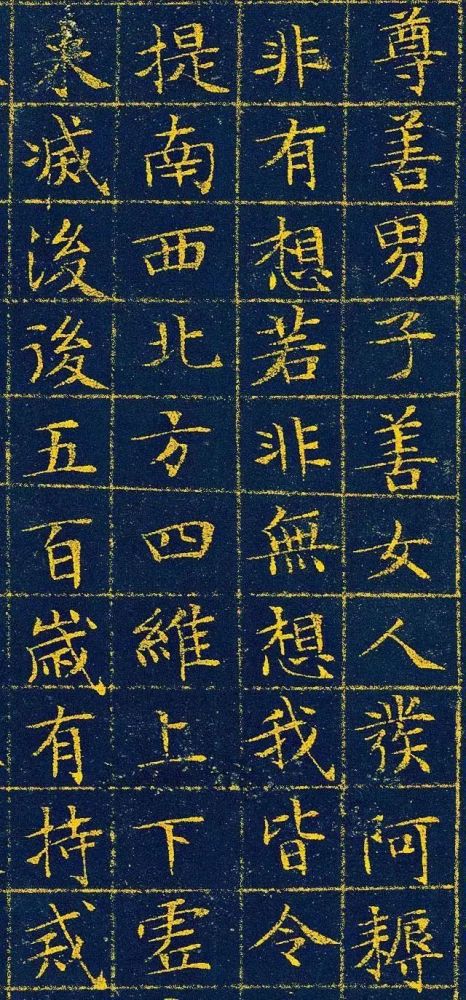 尊善男子善女人發阿耨
非有想若非無想我皆令
提南西北方四維上下虛
来滅後後五百歲有持戒